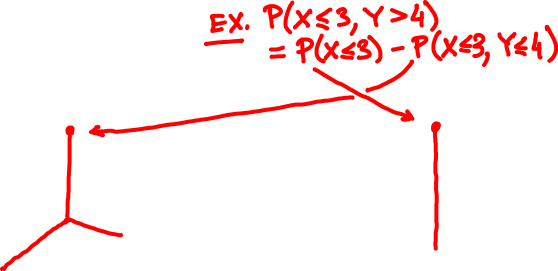 EX. P(X≤3, Y>4)
= P(X≤3) - P(X≤3, Y≤4)